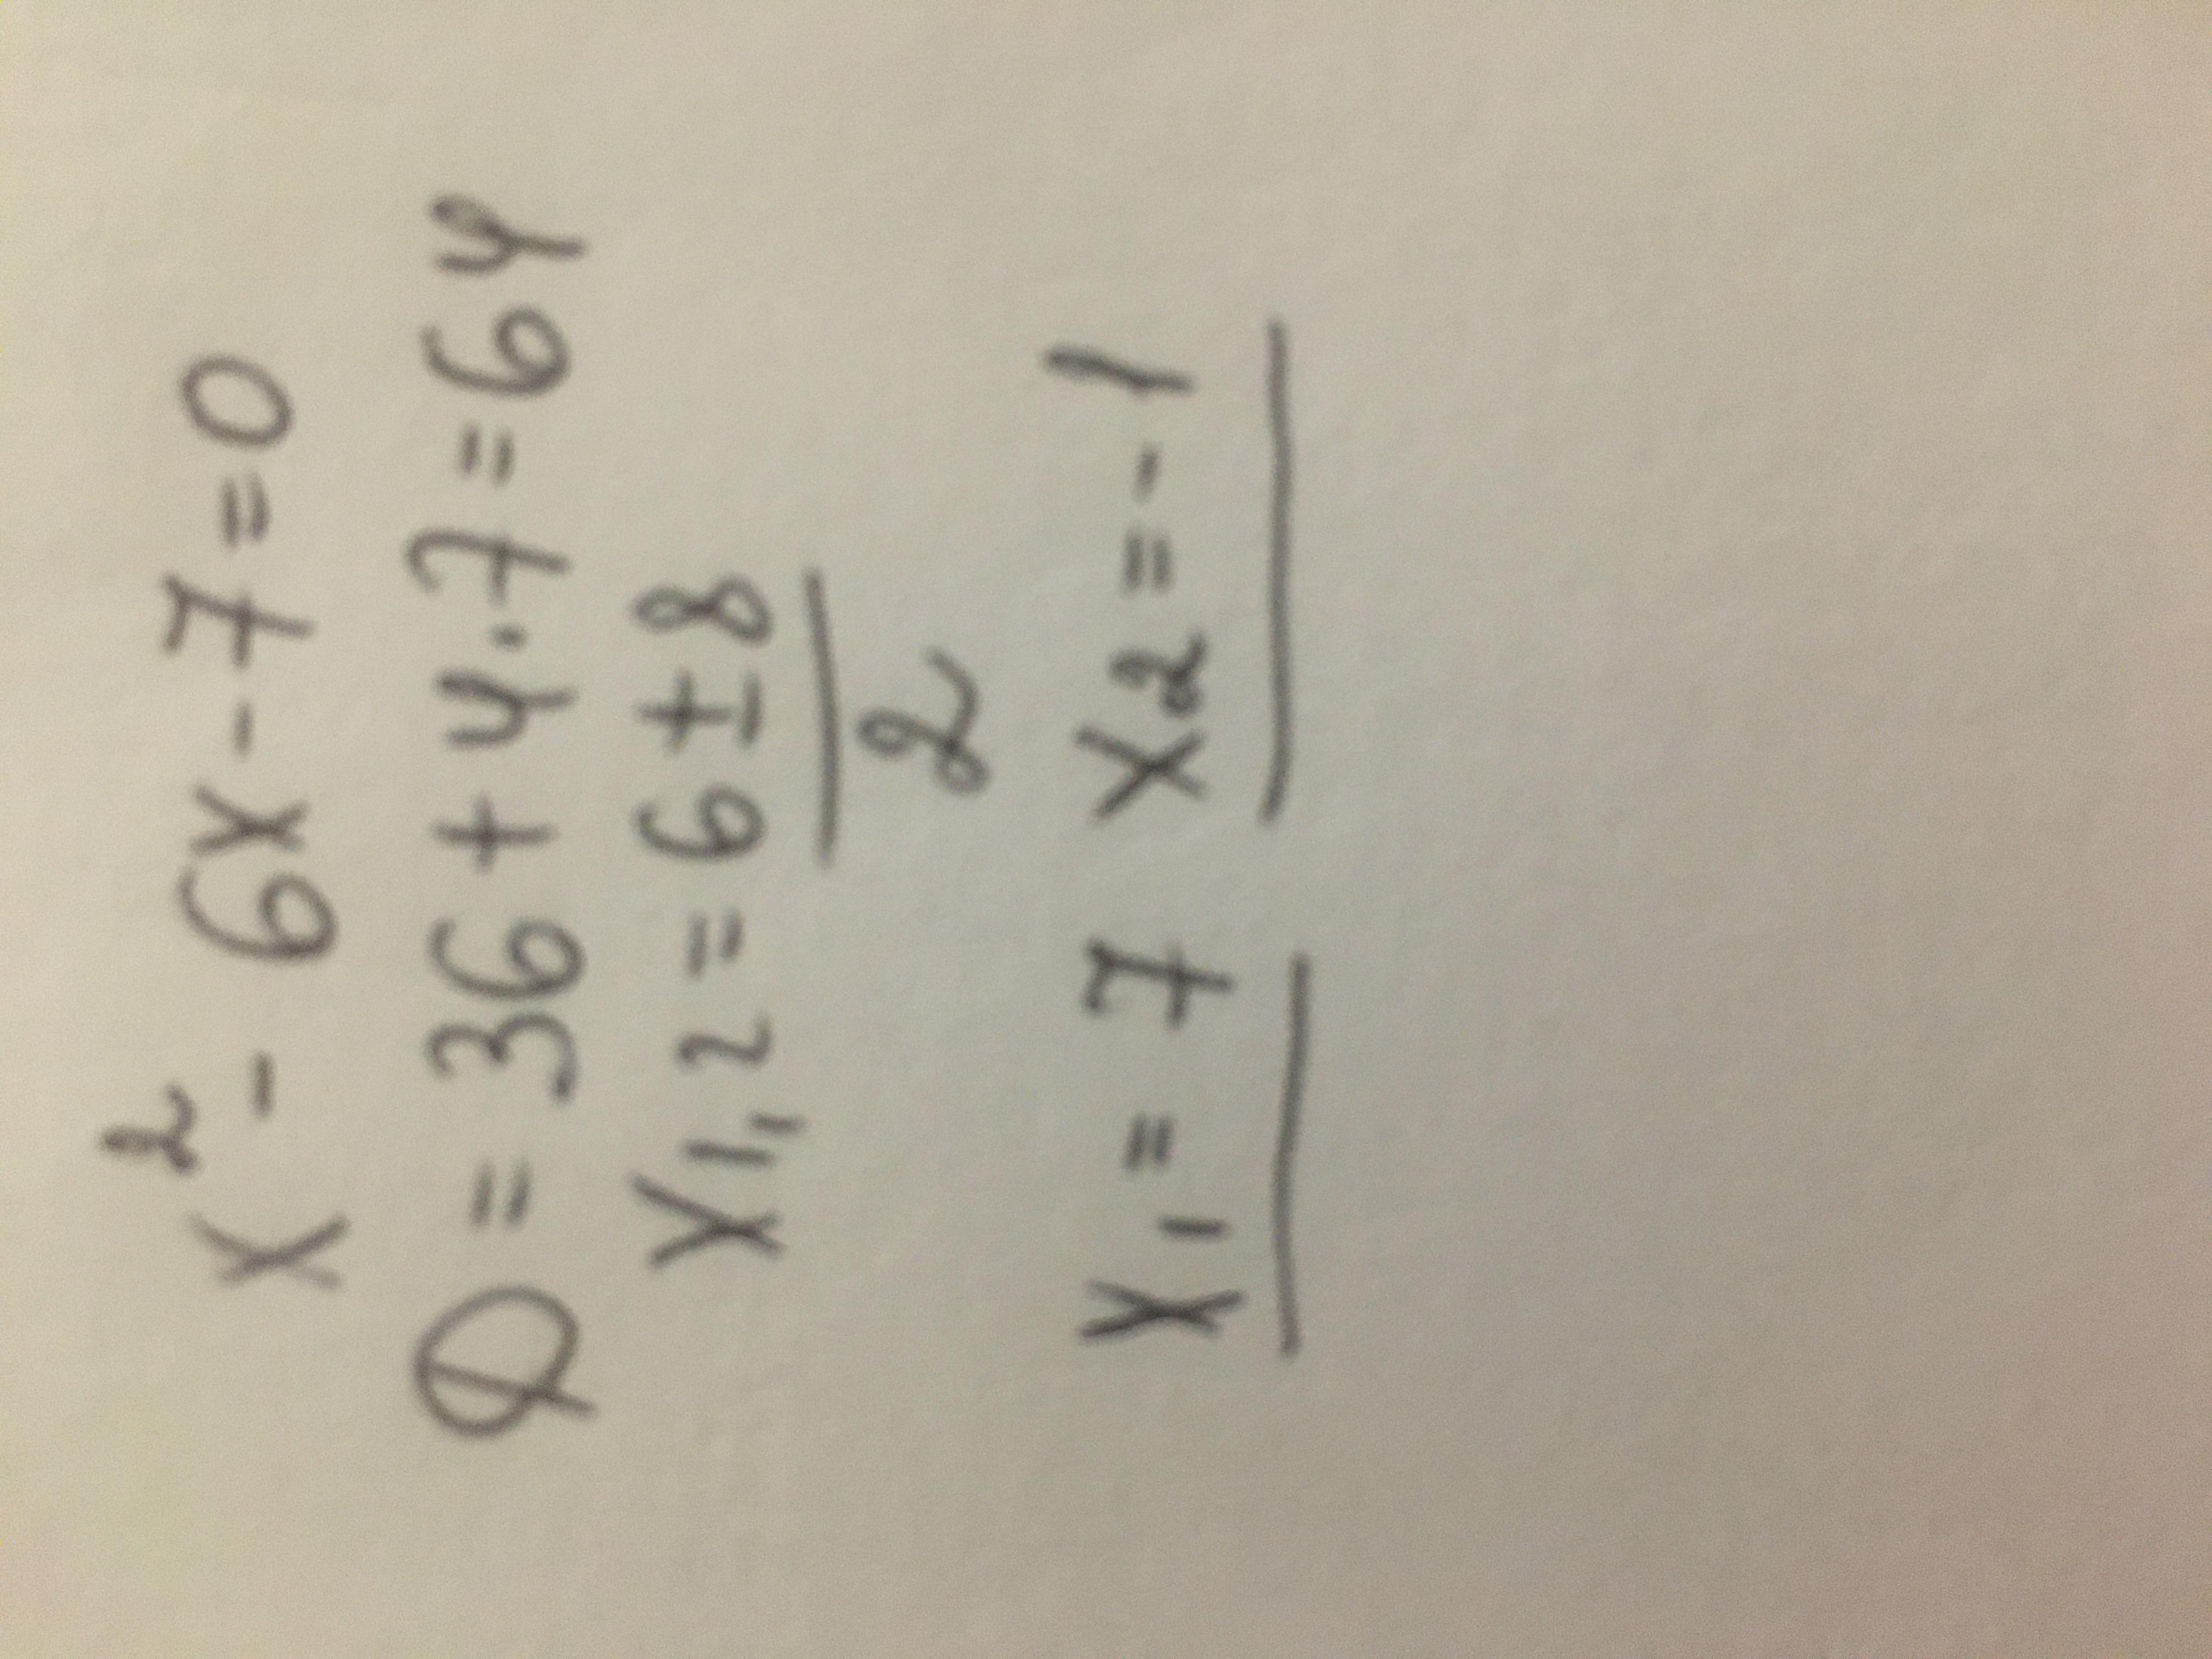 x² - 6x - 7 = 0
D = 36 + 4·7 = 64
x1,2 = 6 ± 8
2
x1 = 7 x2 = - 1